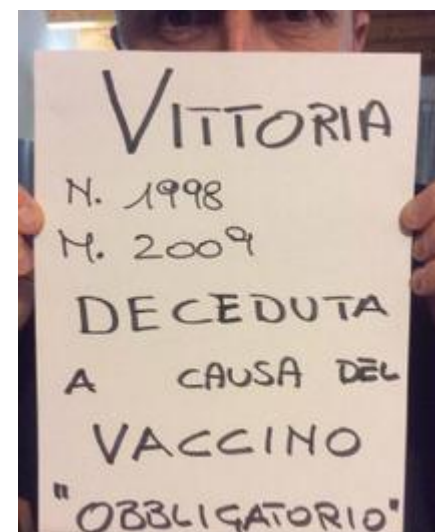 VITTORIA
N. 1998
M. 2009
DECEDUTA
A CAUSA DEL
VACCINO
"OBBLIGATORIO"